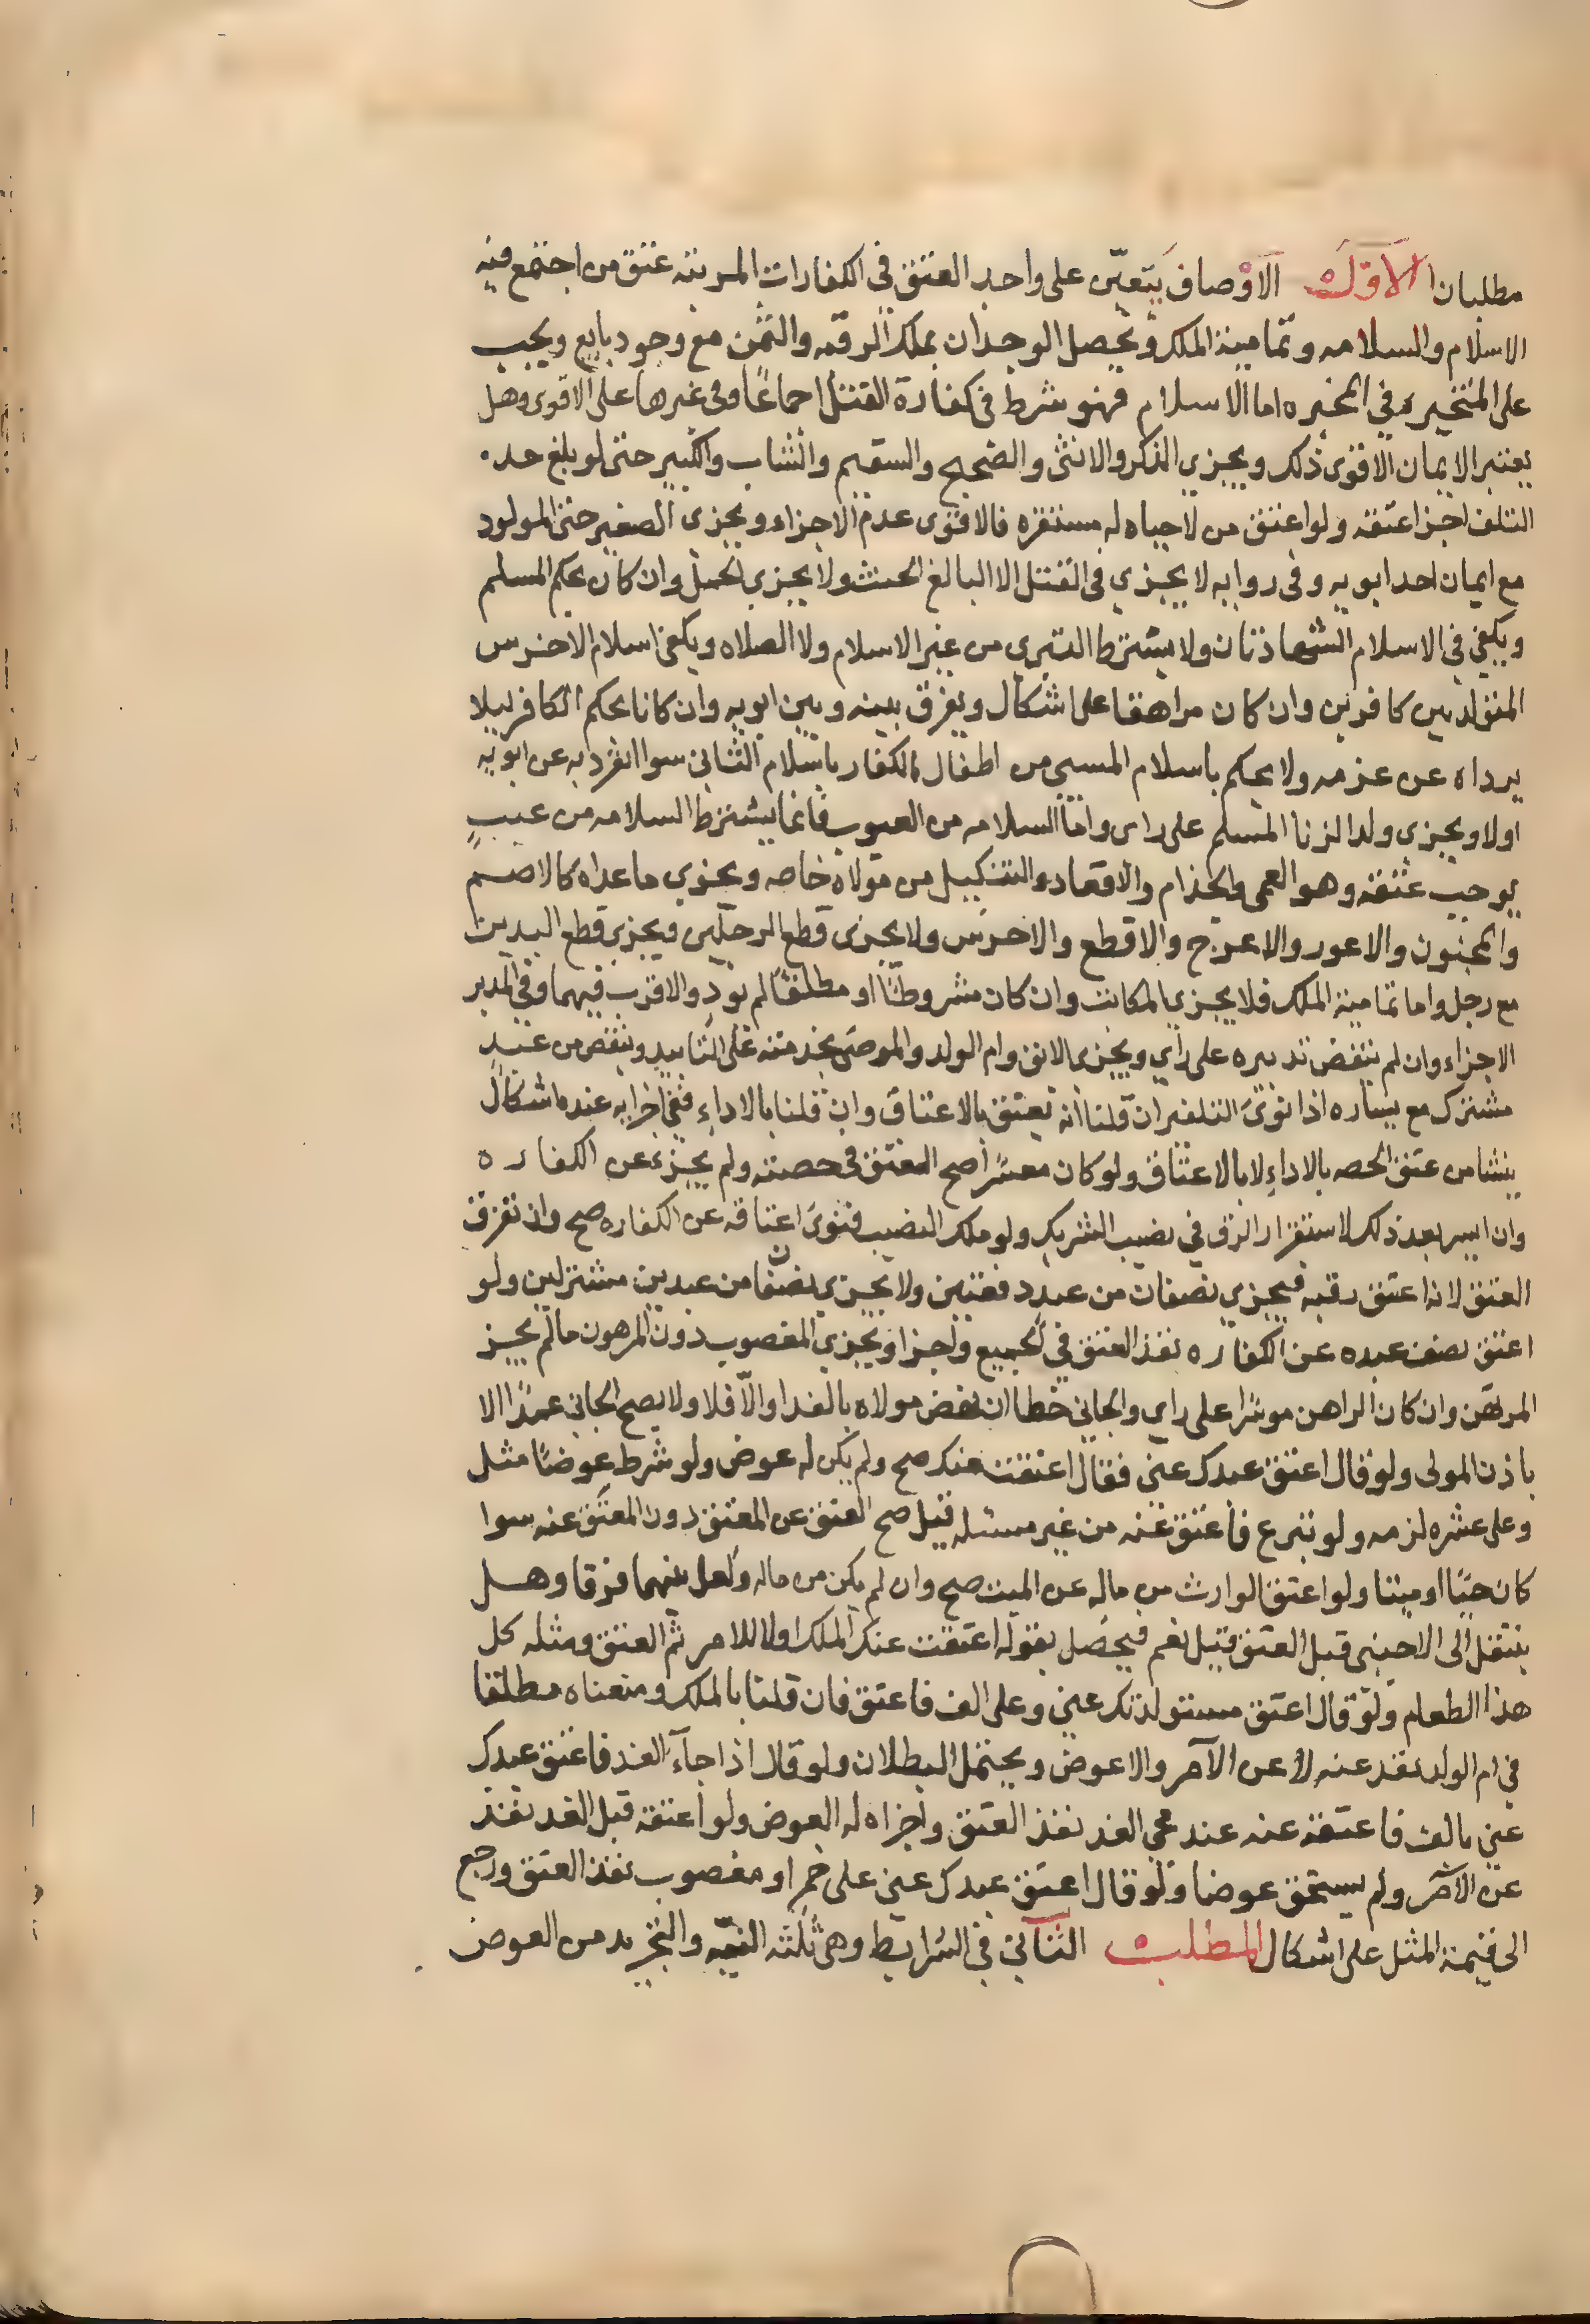 مطلبان الاوّل الاوْصاف يَتعيّن على واجد العتق في الكفارات المرتبه عتق من اجتمع فيه
الاسلام والسلامه وتماميّة الملك ويحصل الوجدان بملك الرقبه والثمن مع وجود بايع ويجب
على المتخير في المخيره اما الاسلام فهو شرط في كفارة القتل اجماعًا وفي غيرها على الاقوى وهل
يعتبر الايمان الاقوى ذلك ويجزي الذكر والانثى والصحيح والسقيم والشاب والكبير حتى لو بلغ حد
التلف اجزا عتقه ولو اعتق من لا حياه له مستقره فالاقوى عدم الاجزاء ويجزى الصغير حتى المولود
مع ايمان احد ابويه وفي روايه لا يجزي في القتل الا البالغ الحنث ولا يجزي الحمل وان كان بحكم المسلم
ويكفي في الاسلام الشهادتان ولا يشترط التبري من غير الاسلام ولا الصلاه ويكفي اسلام الاخرس
المتولد بين كافرين وان كان مراهقا على اشكال ويفرق بينه وبين ابويه وان كانا بحكم الكافر ليلا
يرداه عن عزمه ولا يحكم باسلام المسبي من اطفال الكفار باسلام الثاني سوا انفرد به عن ابويه
اولا ويجزى ولد الزنا المسلم على راى وامّا السلامه من العيوب فانما يشترط السلامه من عيبٍ
يوجب عتقه وهو العمى والجذام والاقعاد والتنكيل من مولاه خاصه ويجزي ما عداه كالاصم
والمجنون والاعور والاعرج والاقطع والاخرس ولا يجزى قطع الرجلين ويجزى قطع اليدين
مع رجل واما تمامية الملك فلا يجزي المكاتب وان كان مشروطًا او مطلقًا لم يودِ والاقرب فيهما وفي المدبر
الاجزاء وان لم ينقض تدبيره على راي ويجزى الابق وام الولد والموصى بخدمته على التابيد وشقص من عبدٍ
مشترك مع يساره اذا نوى التكفير ان قلنا انه يعتق بالاعتاق وان قلنا بالاداءِ ففي اجزايه عنده اشكال
ينشا من عتق الحصه بالاداءِ لا بالاعتاق ولو كان معسرًا صح العتق في حصته ولم يجزء عن الكفاره
وان ايسر بعد ذلك لاستقرار الرق في نصيب الشريك ولو ملك النصيب فنوى اعتاقه عن الكفاره صح وان تفرق
العتق لانه اعتق رقبه فيجزي نصفان من عبد دفعتين ولا يجزي نصفان من عبدين مشتركين ولو
اعتق نصف عبده عن الكفاره نفذ العتق في الجميع واجزا ويجزي المغصوب دون المرهون ما لم يجز
المرتهن وان كان الراهن موسرًا على راي والجاني خطا ان نهض مولاه بالفدا والّا فلا ولا يصح الجاني عمدًا الا
باذن المولى ولو قال اعتق عبدك عني فقال اعتقت عنك صح ولم يكن له عوض ولو شرط عوضًا مثل
وعلى عشره لزمه ولو تبرع فاعتق عنه من غير مسئله قيل صح العتق عن المعتق دون المعتَق عنه سوا
كان حيًا او ميتا ولو اعتق الوارث من ماله عن الميت صح وان لم يكن من ماله ولعل بينهما فرقا وهل
ينتقل الى الاجنبى قبل العتق قيل نعم فيحصل بقوله اعتقت عنك الملك اولا للامر ثم العتق ومثله كل
هذا الطعام ولو قال اعتق مستولدتك عني وعلى الف فاعتق فان قلنا بالملك ومنعناه مطلقا
في ام الولد نفذ عنه لا عن الآمر والاعوض ويحتمل البطلان ولو قال اذا جآء الغد فاعتق عبدك
عني بالف فاعتقه عنه عند مجى الغد نفذ العتق واجزاه له العوض ولو اعتقه قبل الغد نفذ
عن الآمر ولم يستحق عوضا ولو قال اعتق عبدك عني على خمر او مغصوب نفذ العتق ورجع
الى قيمة المثل على اشكال المطلب الثآني في الشرايط وهى ثلثه النيّه والتجريد من العوض